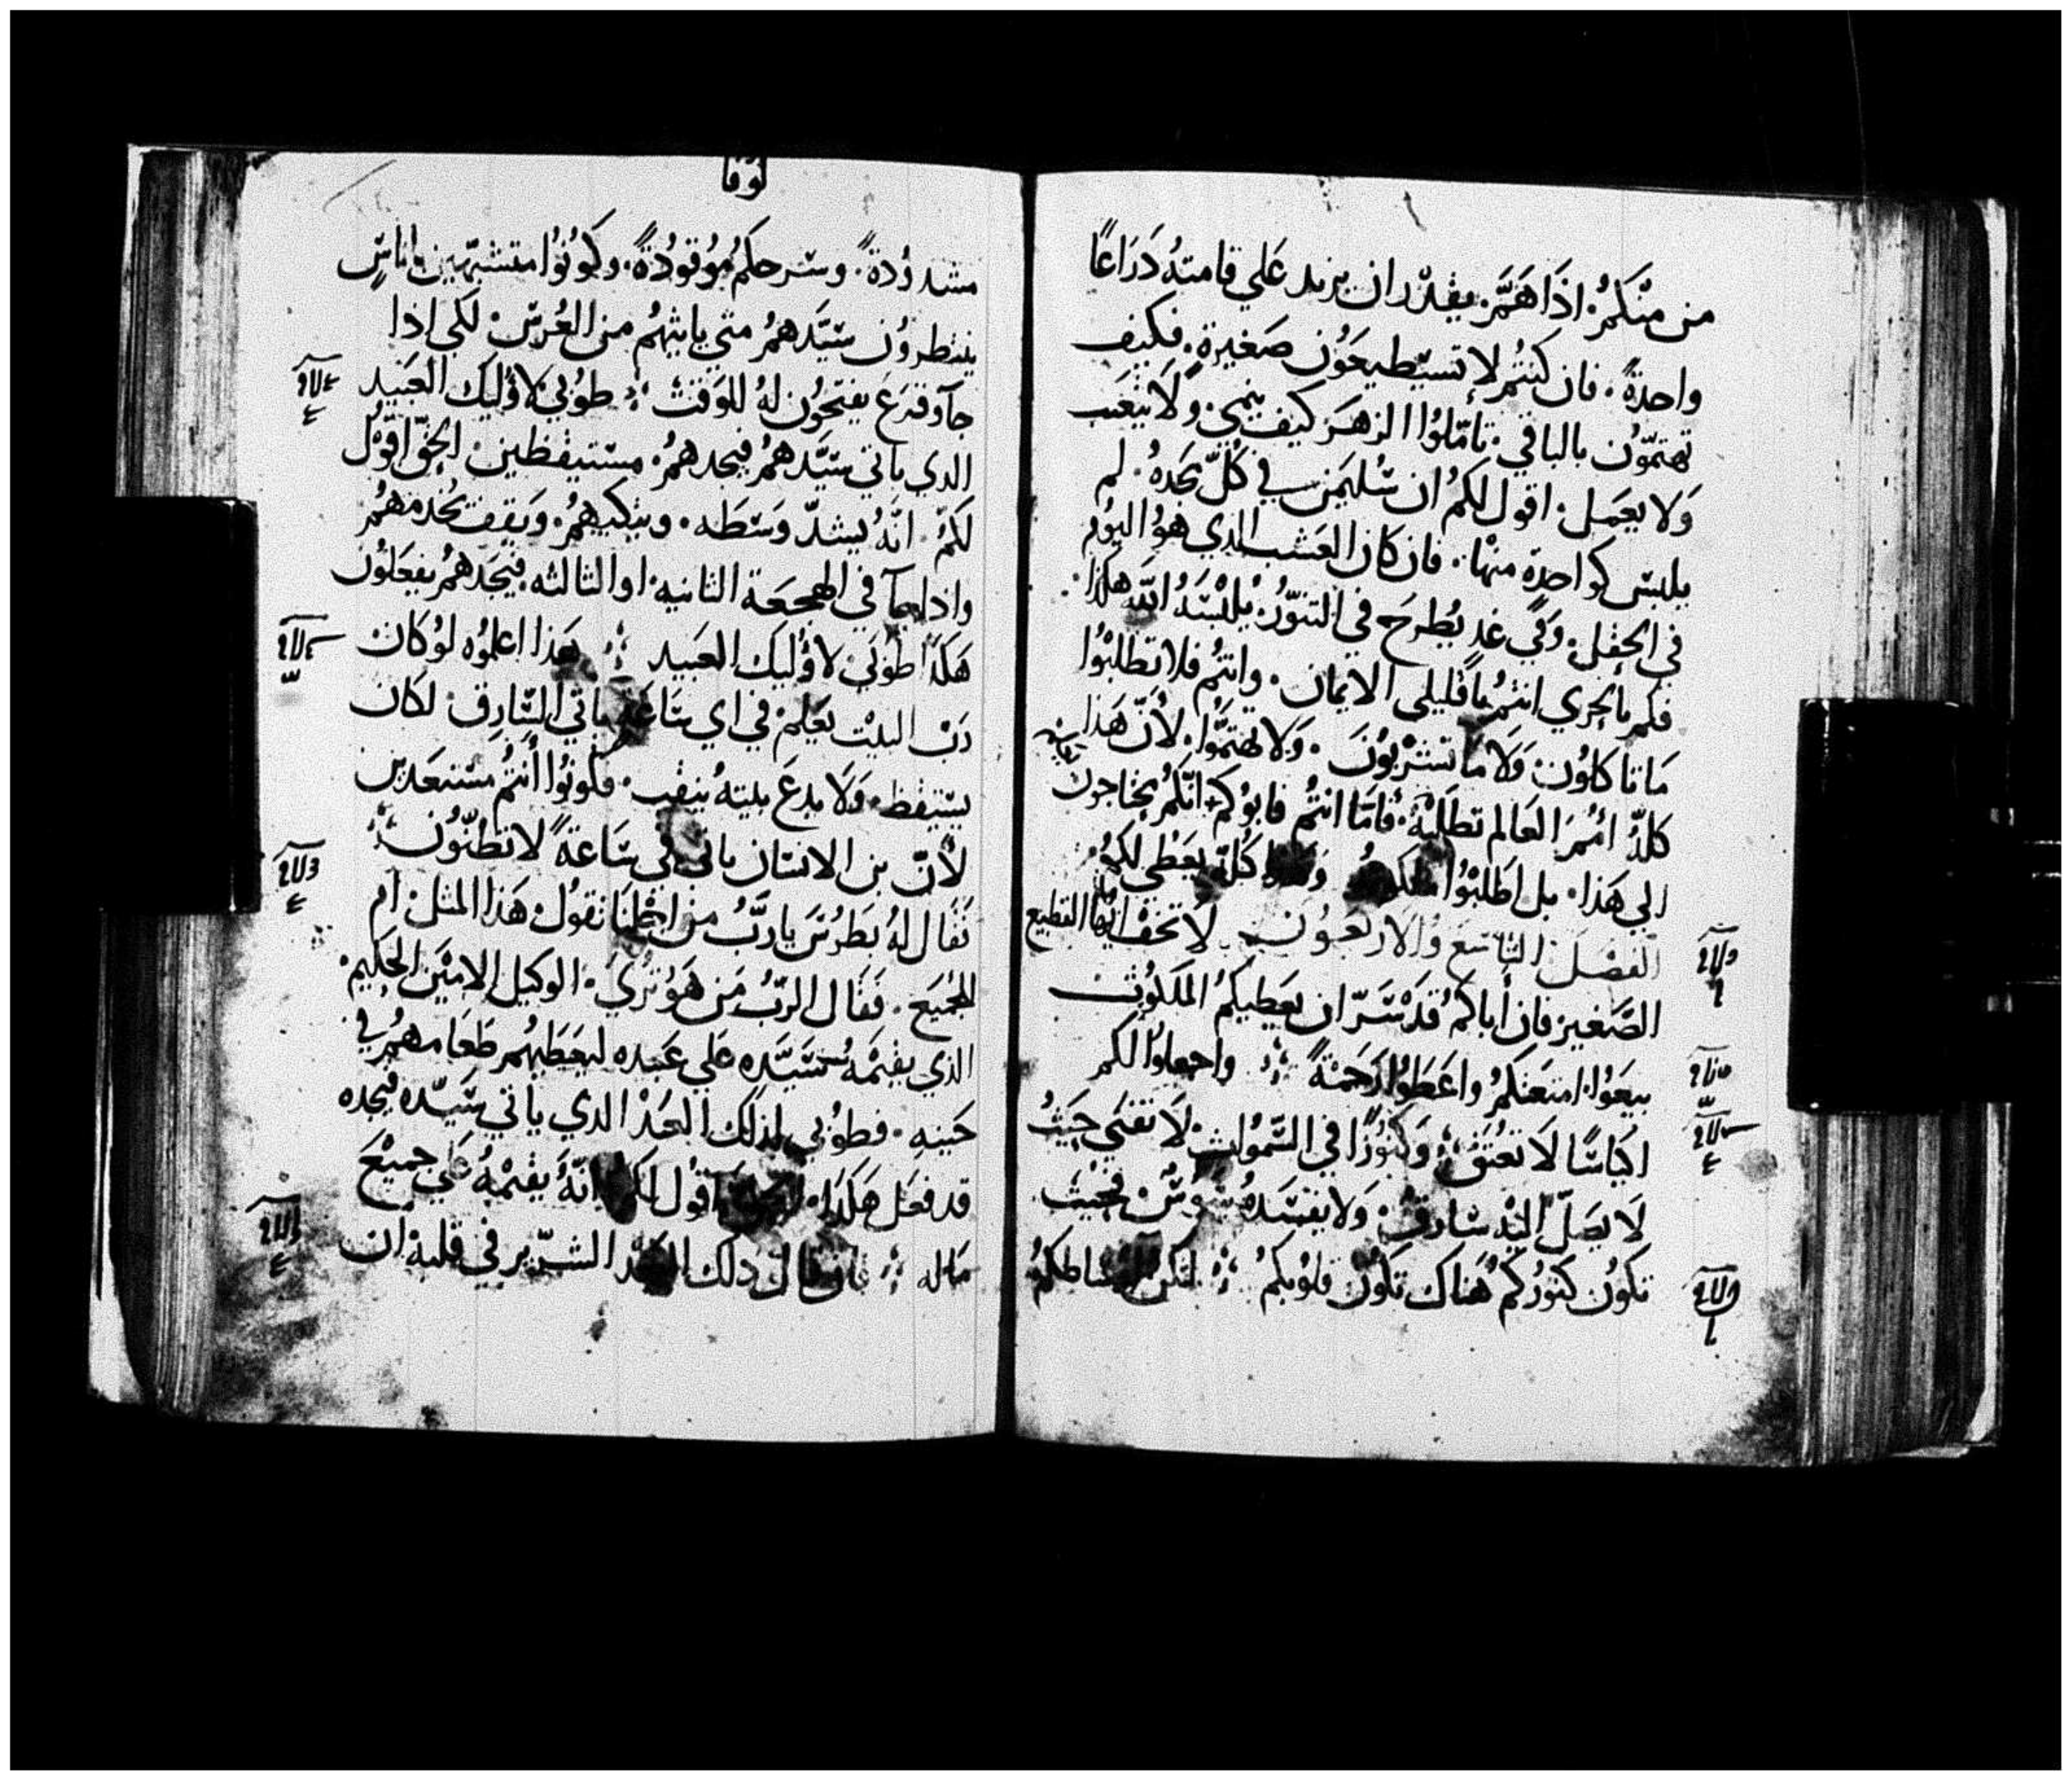 من منكم. اذا همّ. يقدر ان يزيد علي قامته دراعًا
واحدةً. فان كنتم لا تستطيعون صغيرة. فكيف
تهتمّون بالباقي. تامّلوا الزهر كيف ينمي. ولا يتعب
ولا يعمل. اقول لكم ان سليمن في كلّ مجده. لم
يلبس كواحدة منها. فان كان العشب الذي هو اليوم
في الحقل. وفي غد يطرح في التنّور. يلبسه اللّه هكذا.
فكم بالحري انتم يا قليلي الايمان. وانتم فلا تطلبوا
ما تاكلون ولا ما تشربون. ولا تهتمّوا. لأنّ هذا
كلّه امم العالم تطلبه. فامّا انتم فابوكم انّكم تحتاجون
الي هذا. بل اطلبوا وهذا كلّه يعطي لكم.
الفصل التاسع والاربعون لا تخف ايّها القطيع
الصّغير فان أباكم قد سرّ ان يعطيكم الملكوت
بيعوا امتعتكم واعطوا رحمةً واجعلوا لكم
اكياسًا لا تعتق وكنوزًا في السّموات. لا تفني حيث
لا يصلّ اليه سارق. ولا يفسده سوس. فحيث
تكون كنوزكم هناك تكون قلوبكم لتكن اوساطكم
لوقا
مشدودةً. وسرجكم موقودةً. وكونوا متشبّهين باناسٍ
ينتظرون سيّدهم متي ياتيهم من العرس. لكي اذا
جآ وقرع يفتحون له للوقت طوبي لاوليك العبيد
الدي ياتي سيّدهم فيجدهم. مستيقظين الحقّ اقول
لكم. انّه يشدّ وسطه. ويتكيهم. ويقف يخدمهم
واذا جآ في الهجعة الثانيه. او الثالثه. فيجدهم يفعلون
هكذا طوبي لاوليك العبيد هذا اعلموه لو كان
ربّ البيت يعلم في اي ساعة ياتي السّارق. لكان
يستيقظ. ولا يدع بيته ينقب. فكونوا أنتم مستعدين
لأنّ بن الانسان ياتي في ساعة لا تظنّون
فقال له بطرس يا ربّ من اجلنا تقول هذا المثل. ام
للجميع. فقال الربّ من هو تري. الوكيل الامين الحكيم.
الذي يقيمه سيّده علي عبيده ليعطيهم طعامهم في
حينه. فطوبي لذلك العبد الدي ياتي سيّده فيجده
قد فعل هكذا. اقول لكم انّه يقيمه علي جميع
ماله فان قال دلك العبد الشرّير في قلبه ان